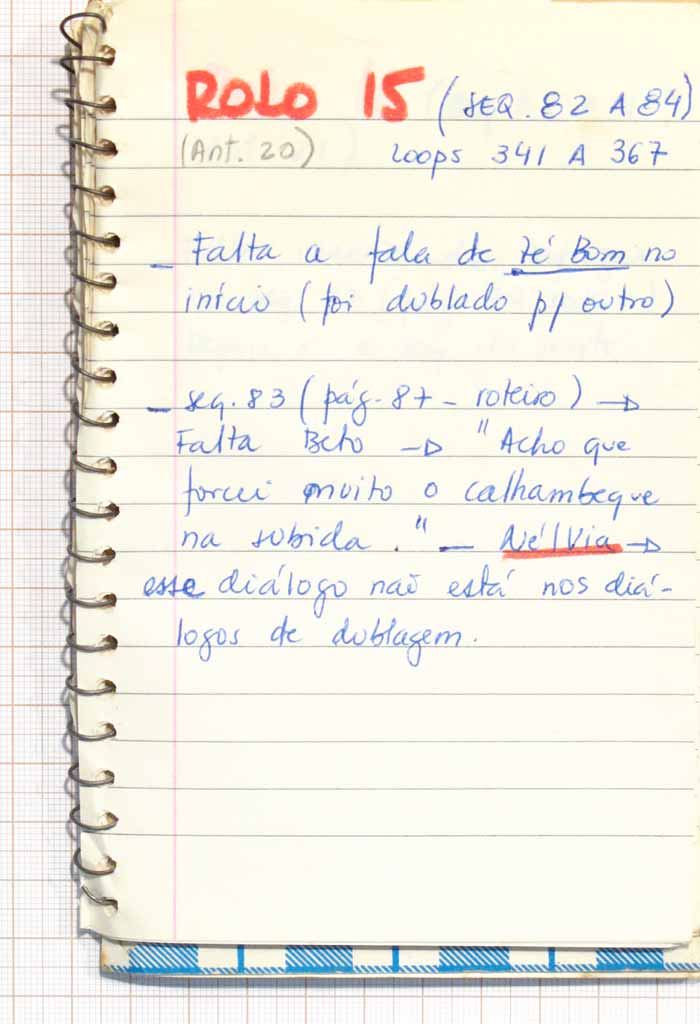 ROLO 15 (SEQ. 82 A 84)
(Ant. 20) Loops 341 A 367
- Falta a fala de Zé Bom no
início (foi dublado p/ outro)
- seq. 83 (pág. 87 - roteiro) →
Falta Beto → "Acho que
forcei muito o calhambeque
na subida." - Nélvia →
esse diálogo não está nos diá-
logos de dublagem.